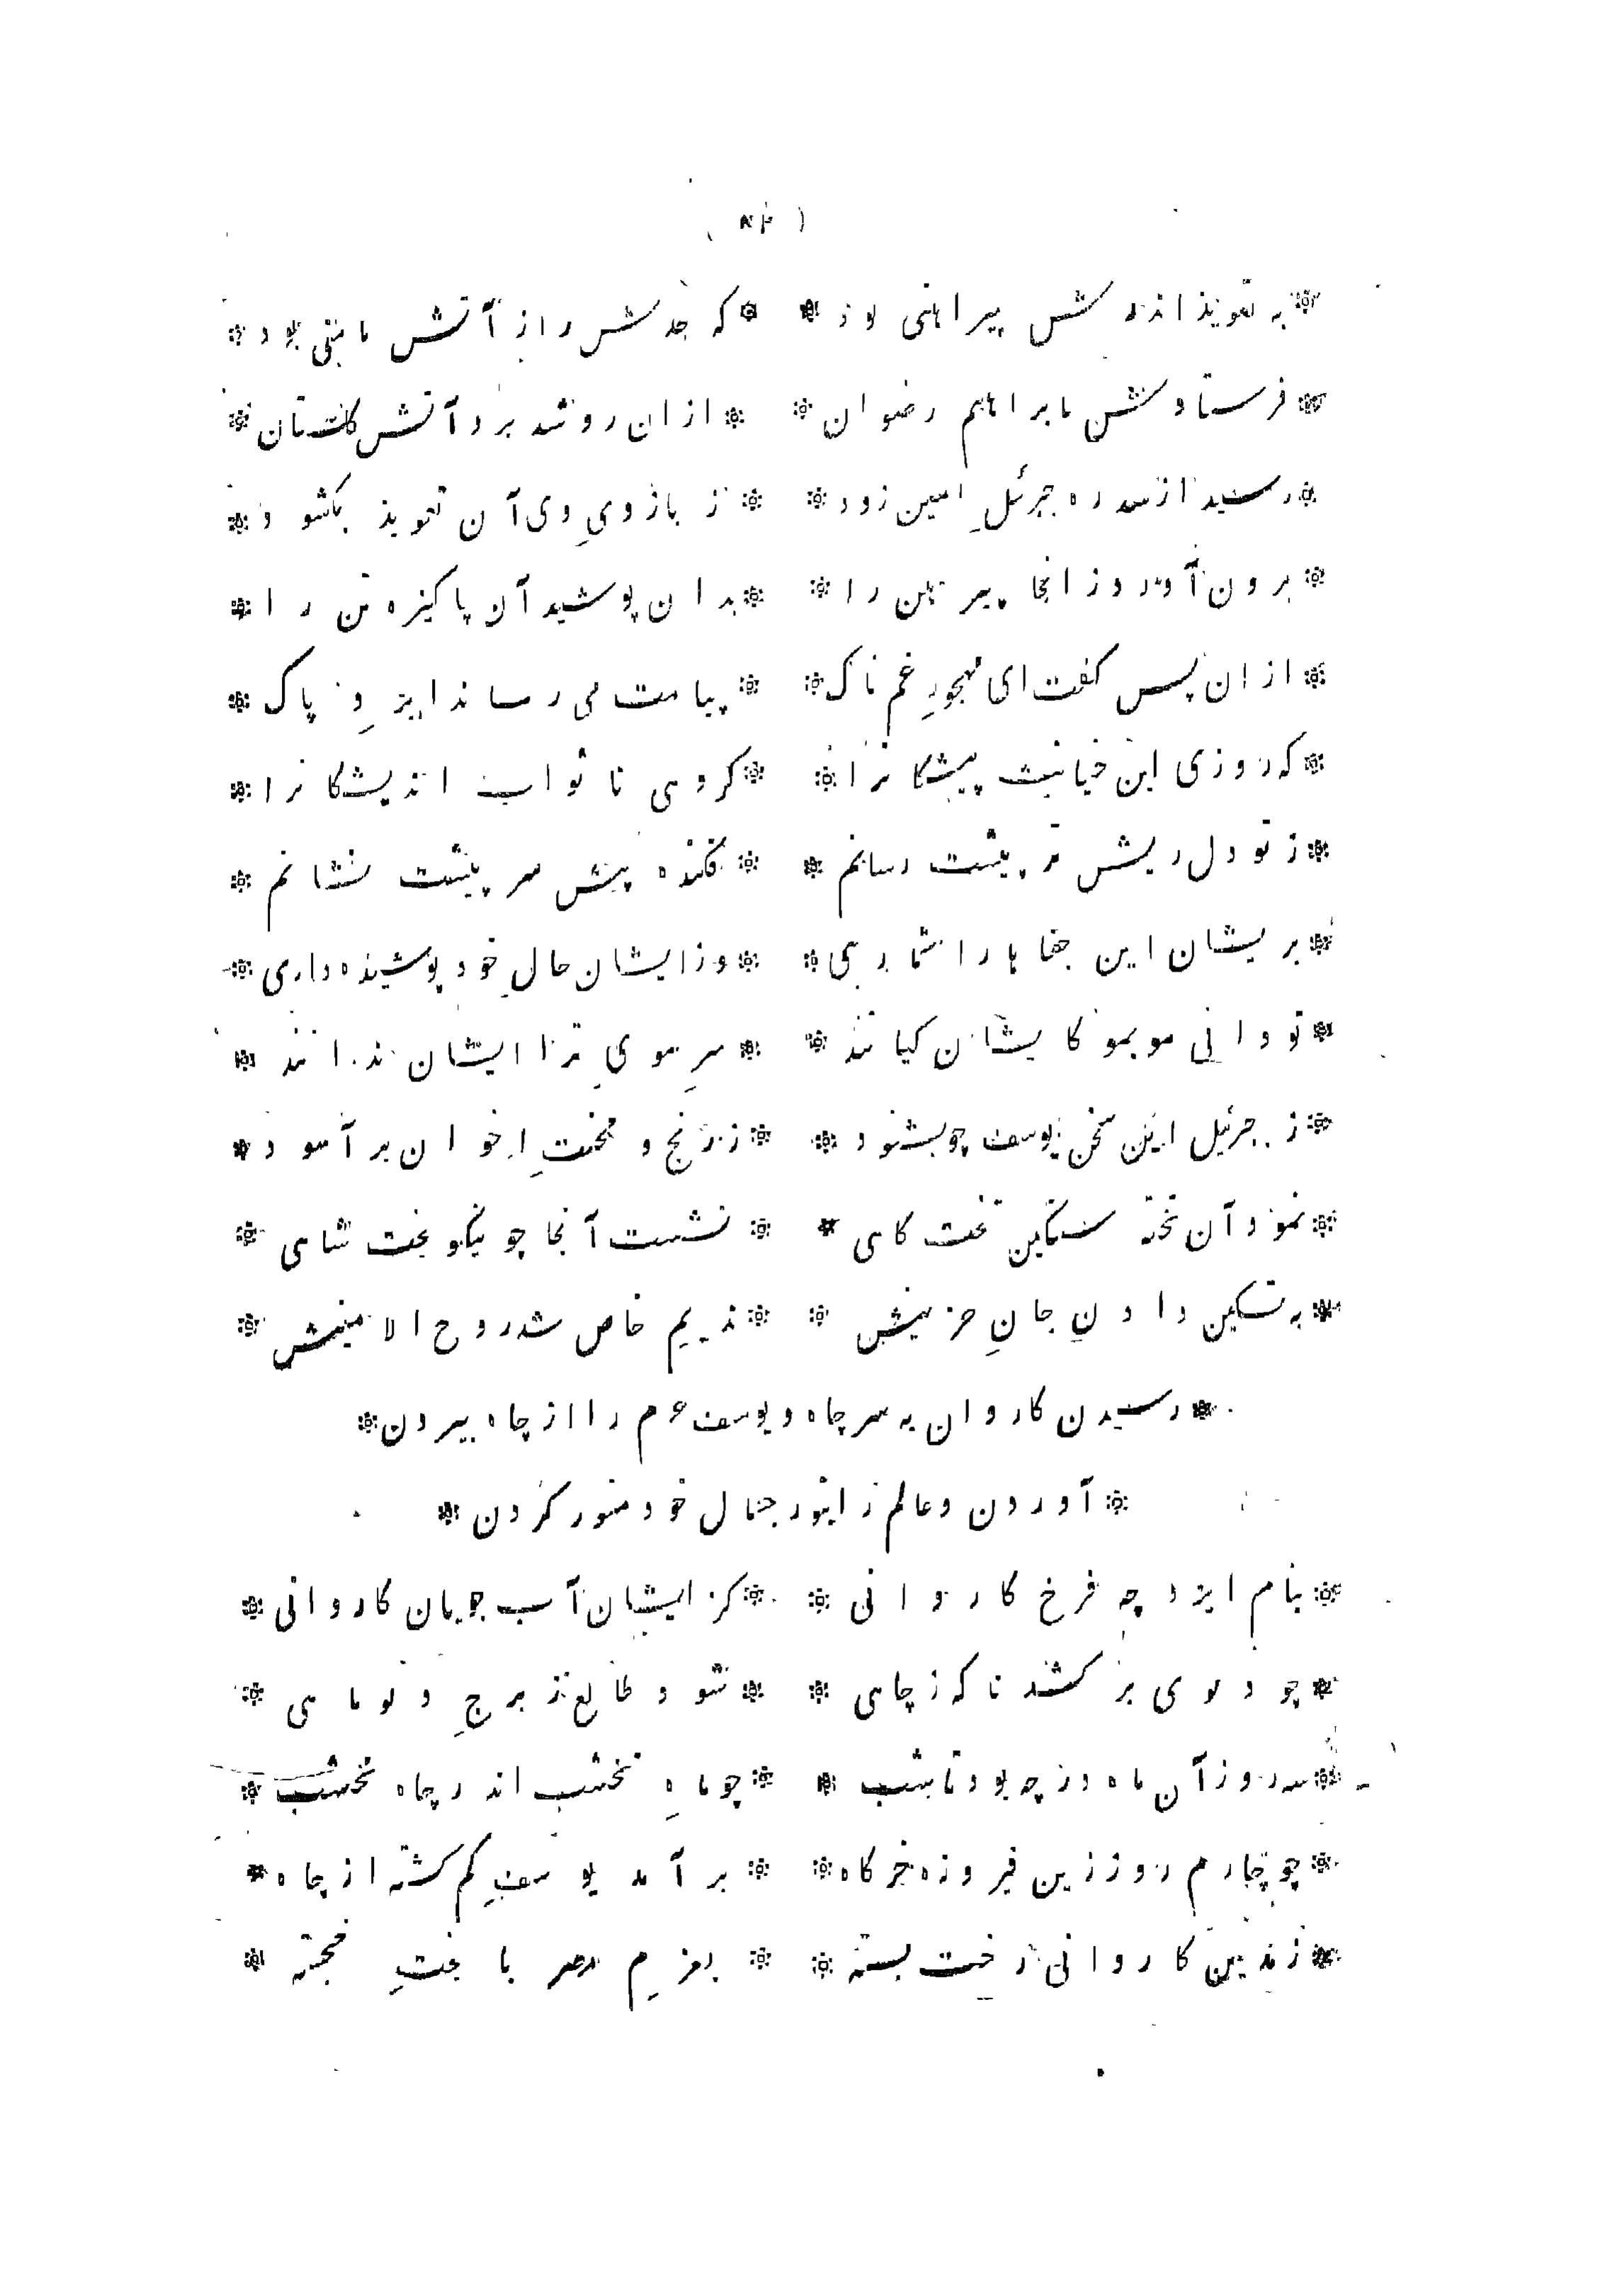 ( ۸۴ )
* به تعویذ اندرش پیراهنی بود * * که جدش را از آتش مامنی بود *
* فرستادش بابراهیم رضوان * * ازان رو شد برد آتش گلستان *
* رسید از سدره جبرئلِ امین زود * * ز بازویِ وی آن تعویذ بکشود *
* برون آورد از انجا پیرهن را * * بدان پوشید آن پاکیزه تن را *
* ازان پس کفت ای مهجورِ غم ناک * * پیامت می رساند ایزدِ پاک *
* که روزی این خیانت پیشکانرا * * کروهی ناثواب اندیشکانرا *
* ز تو دل ریش تر پیشت رسانم * * فکنده پیش سر پیشت نشانم *
* بریشان این جفاها را شماری * * وز ایشان حالِ خود پوشیده داری *
* تو دانی موبمو کایشان کیانند * * سرِ مویِ ترا ایشان ندانند *
* ز جبرئیل این سخن یوسف چو بشنود * * ز رنج و محنتِ اخوان بر آسود *
* نمود آن تخته سنکین تخت کاهی * * نشست آنجا چو نیکو بخت شاهی *
* به تسکین دادنِ جانِ حزینش * * ندیمِ خاص شد روح الامینش *
* رسیدن کاروان به سر چاه و یوسف ع م را از چاه بیرون *
* آوردن و عالم را بنور جمال خود منور کردن *
* بنام ایزد چه فرخ کاروانی * * کز ایشان آب جویان کاروانی *
* چو دلوی بر کشد ناکه ز چاهی * * شود طالع ز برجِ دلو ماهی *
* سه روز آن ماه در چه بود تا شب * * چو ماهِ نخشب اندر چاه نخشب *
* چو چارم روز زین فیروزه خرکاه * * بر آمد یوسفِ کم کشته از چاه *
* ز مدین کاروانی رخت بسته * * بعزمِ مصر با بختِ خجسته *